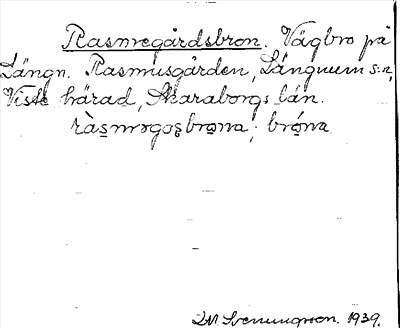 Rasmregårdsbron. Vägbro på
Längn. Rasmusgården, Längnum s:n,
Viste härad, Skaraborgs län.
ràsmrogosbrona; bróna
1939.